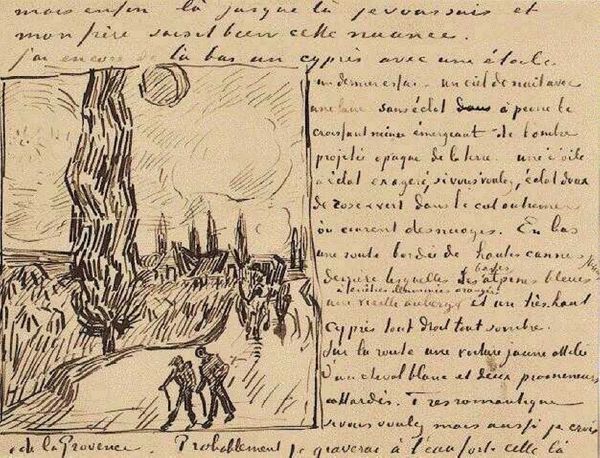 mais enfin là jusque là je vous suis et
mon frère saisit bien cette nuance.
j'ai encore de là bas un cyprès avec une étoile
un dernier essai – un ciel de nuit avec
une lune sans éclat dans à peine le
croissant mince émergeant de l'ombre
projetée opaque de la terre – une étoile
à éclat exagéré, si vous voulez, éclat doux
de rose & vert dans le ciel outremer
où courent des nuages. En bas
une route bordée de hautes cannes
derrière lesquelles les basses alpines bleues
à fenêtres illuminées orangées
une vieille auberge et un très haut
cyprès tout droit tout sombre.
Sur la route une voiture jaune attelée
d'un cheval blanc et deux promeneurs
attardés. Très romantique
si vous voulez mais aussi je crois
de la Provence. Probablement je graverai à l'eau forte celle là